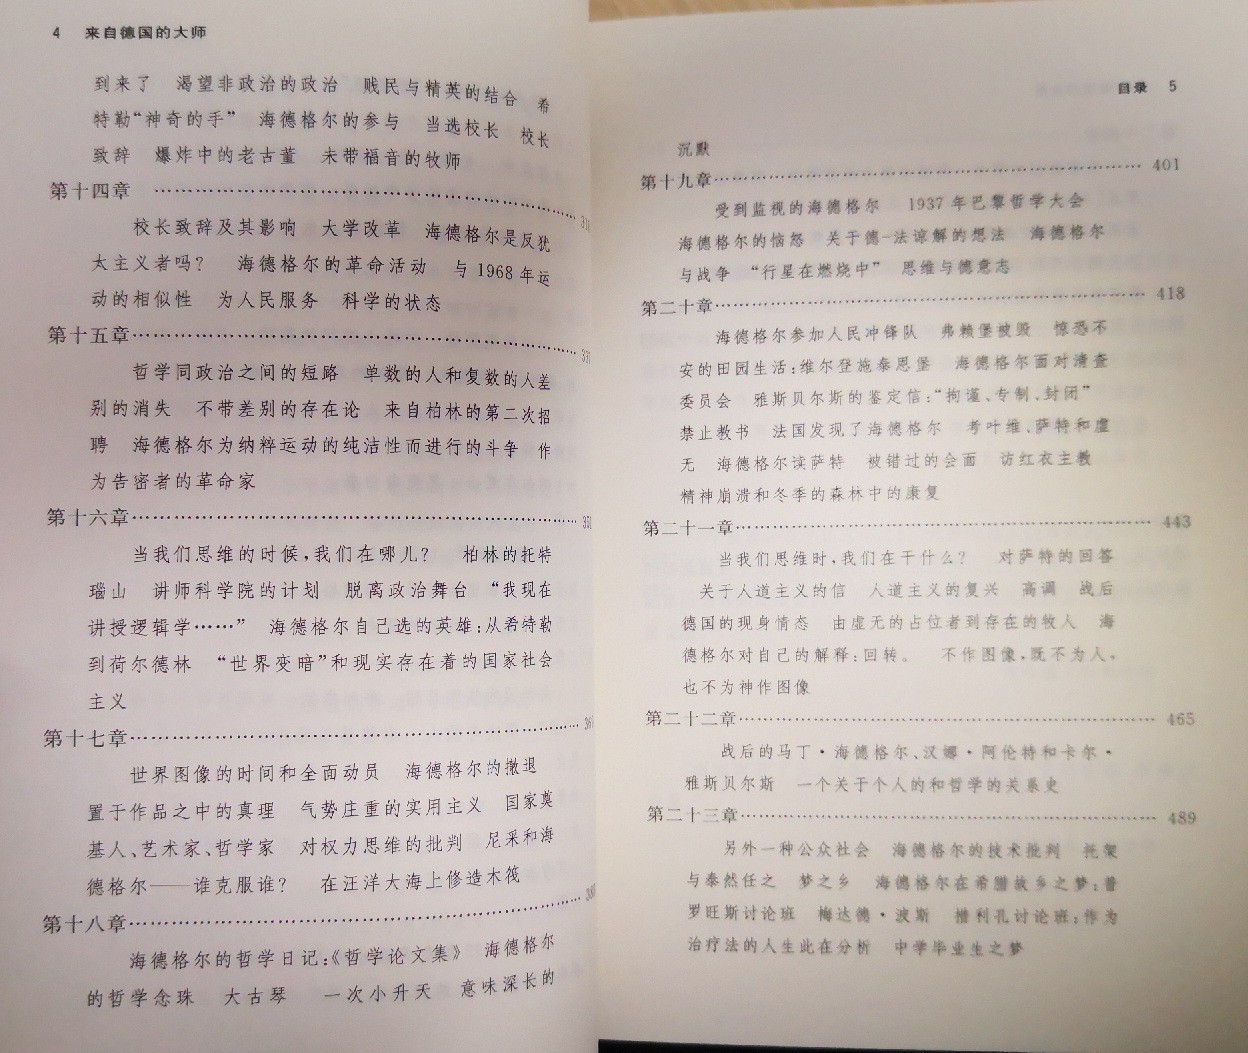 4 来自德国的大师
到来了 渴望非政治的政治 贱民与精英的结合 希
特勒“神奇的手” 海德格尔的参与 当选校长 校长
致辞 爆炸中的老古董 未带福音的牧师
第十四章 ……………………………………………
校长致辞及其影响 大学改革 海德格尔是反犹
太主义者吗？ 海德格尔的革命活动 与1968年运
动的相似性 为人民服务 科学的状态
第十五章……………………………………………
哲学同政治之间的短路 单数的人和复数的人差
别的消失 不带差别的存在论 来自柏林的第二次招
聘 海德格尔为纳粹运动的纯洁性而进行的斗争 作
为告密者的革命家
第十六章……………………………………………
当我们思维的时候，我们在哪儿？ 柏林的托特
瑙山 讲师科学院的计划 脱离政治舞台 “我现在
讲授逻辑学……” 海德格尔自己选的英雄：从希特勒
到荷尔德林 “世界变暗”和现实存在着的国家社会
主义
第十七章……………………………………………
世界图像的时间和全面动员 海德格尔的撤退
置于作品之中的真理 气势庄重的实用主义 国家奠
基人、艺术家、哲学家 对权力思维的批判 尼采和海
德格尔——谁克服谁？ 在汪洋大海上修造木筏
第十八章……………………………………………
海德格尔的哲学日记：《哲学论文集》 海德格尔
的哲学念珠 大古琴 一次小升天 意味深长的
目录 5
沉默
第十九章…………………………………………… 401
受到监视的海德格尔 1937年巴黎哲学大会
海德格尔的恼怒 关于德-法谅解的想法 海德格尔
与战争 “行星在燃烧中” 思维与德意志
第二十章…………………………………………… 418
海德格尔参加人民冲锋队 弗赖堡被毁 惊恐不
安的田园生活：维尔登施泰恩堡 海德格尔面对清查
委员会 雅斯贝尔斯的鉴定信：“拘谨、专制、封闭”
禁止教书 法国发现了海德格尔 考叶维、萨特和虚
无 海德格尔读萨特 被错过的会面 访红衣主教
精神崩溃和冬季的森林中的康复
第二十一章………………………………………… 443
当我们思维时，我们在干什么？ 对萨特的回答
关于人道主义的信 人道主义的复兴 高调 战后
德国的现身情态 由虚无的占位者到存在的牧人 海
德格尔对自己的解释：回转。 不作图像，既不为人，
也不为神作图像
第二十二章………………………………………… 465
战后的马丁·海德格尔、汉娜·阿伦特和卡尔·
雅斯贝尔斯 一个关于个人的和哲学的关系史
第二十三章………………………………………… 489
另外一种公众社会 海德格尔的技术批判 托架
与泰然任之 梦之乡 海德格尔在希腊故乡之梦：普
罗旺斯讨论班 梅达德·波斯 楷利孔讨论班：作为
治疗法的人生此在分析 中学毕业生之梦